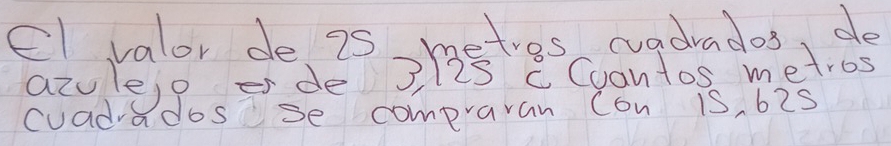 El valor de 25 metros cuadrados de
azulejo es de 3,125 ¿Cuantos metros
cuadrados se compraran con 15,625